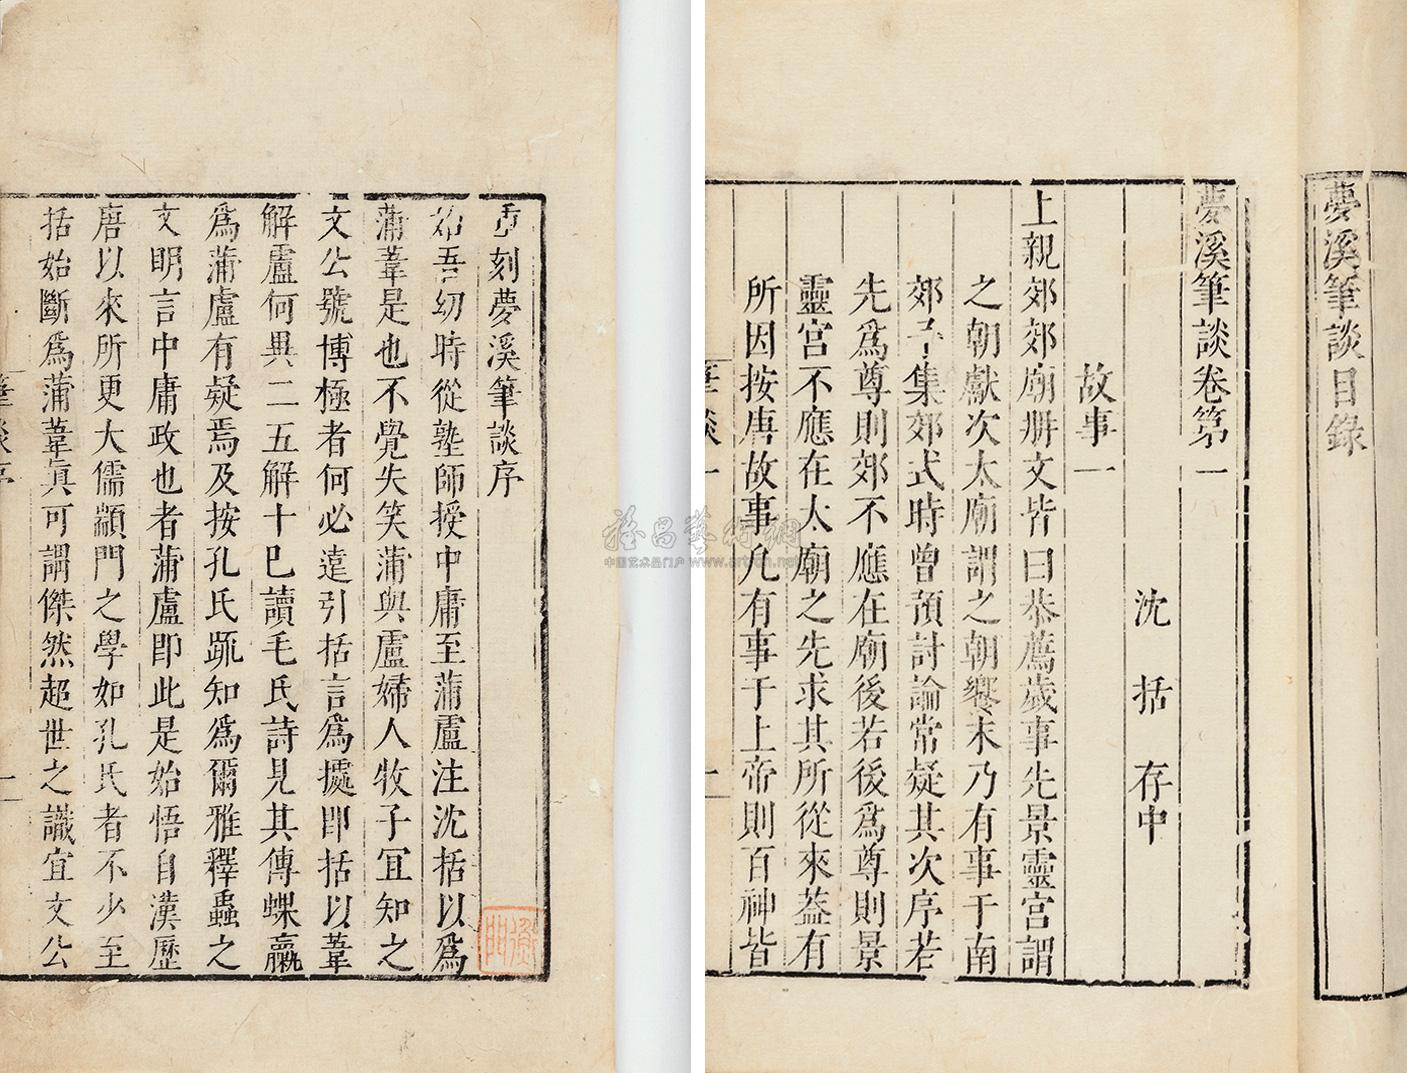 夢溪筆談目錄
夢溪筆談卷第一
沈括存中
故事一
上親郊郊廟冊文皆曰恭薦歲事先景靈宮謂
之朝獻次太廟謂之朝饗末乃有事于南
郊予集郊式時曾預討論常疑其次序若
先爲尊則郊不應在廟後若後爲尊則景
靈宮不應在太廟之先求其所從來蓋有
所因按唐故事凡有事于上帝則百神皆
筆談一
重刻夢溪筆談序
始吾幼時從塾師授中庸至蒲盧注沈括以爲
蒲葦是也不覺失笑蒲與盧婦人牧子冝知之
文公號博極者何必遠引括言爲據即括以葦
解盧何異二五解十巳讀毛氏詩見其傳蜾蠃
爲蒲盧有疑焉及按孔氏疏知爲爾雅釋蟲之
文明言中庸政也者蒲盧即此是始悟自漢歷
唐以來所更大儒顓門之學如孔氏者不少至
括始斷爲蒲葦眞可謂傑然超世之識宜文公
筆談序
中国艺术品门户 www.artron.net